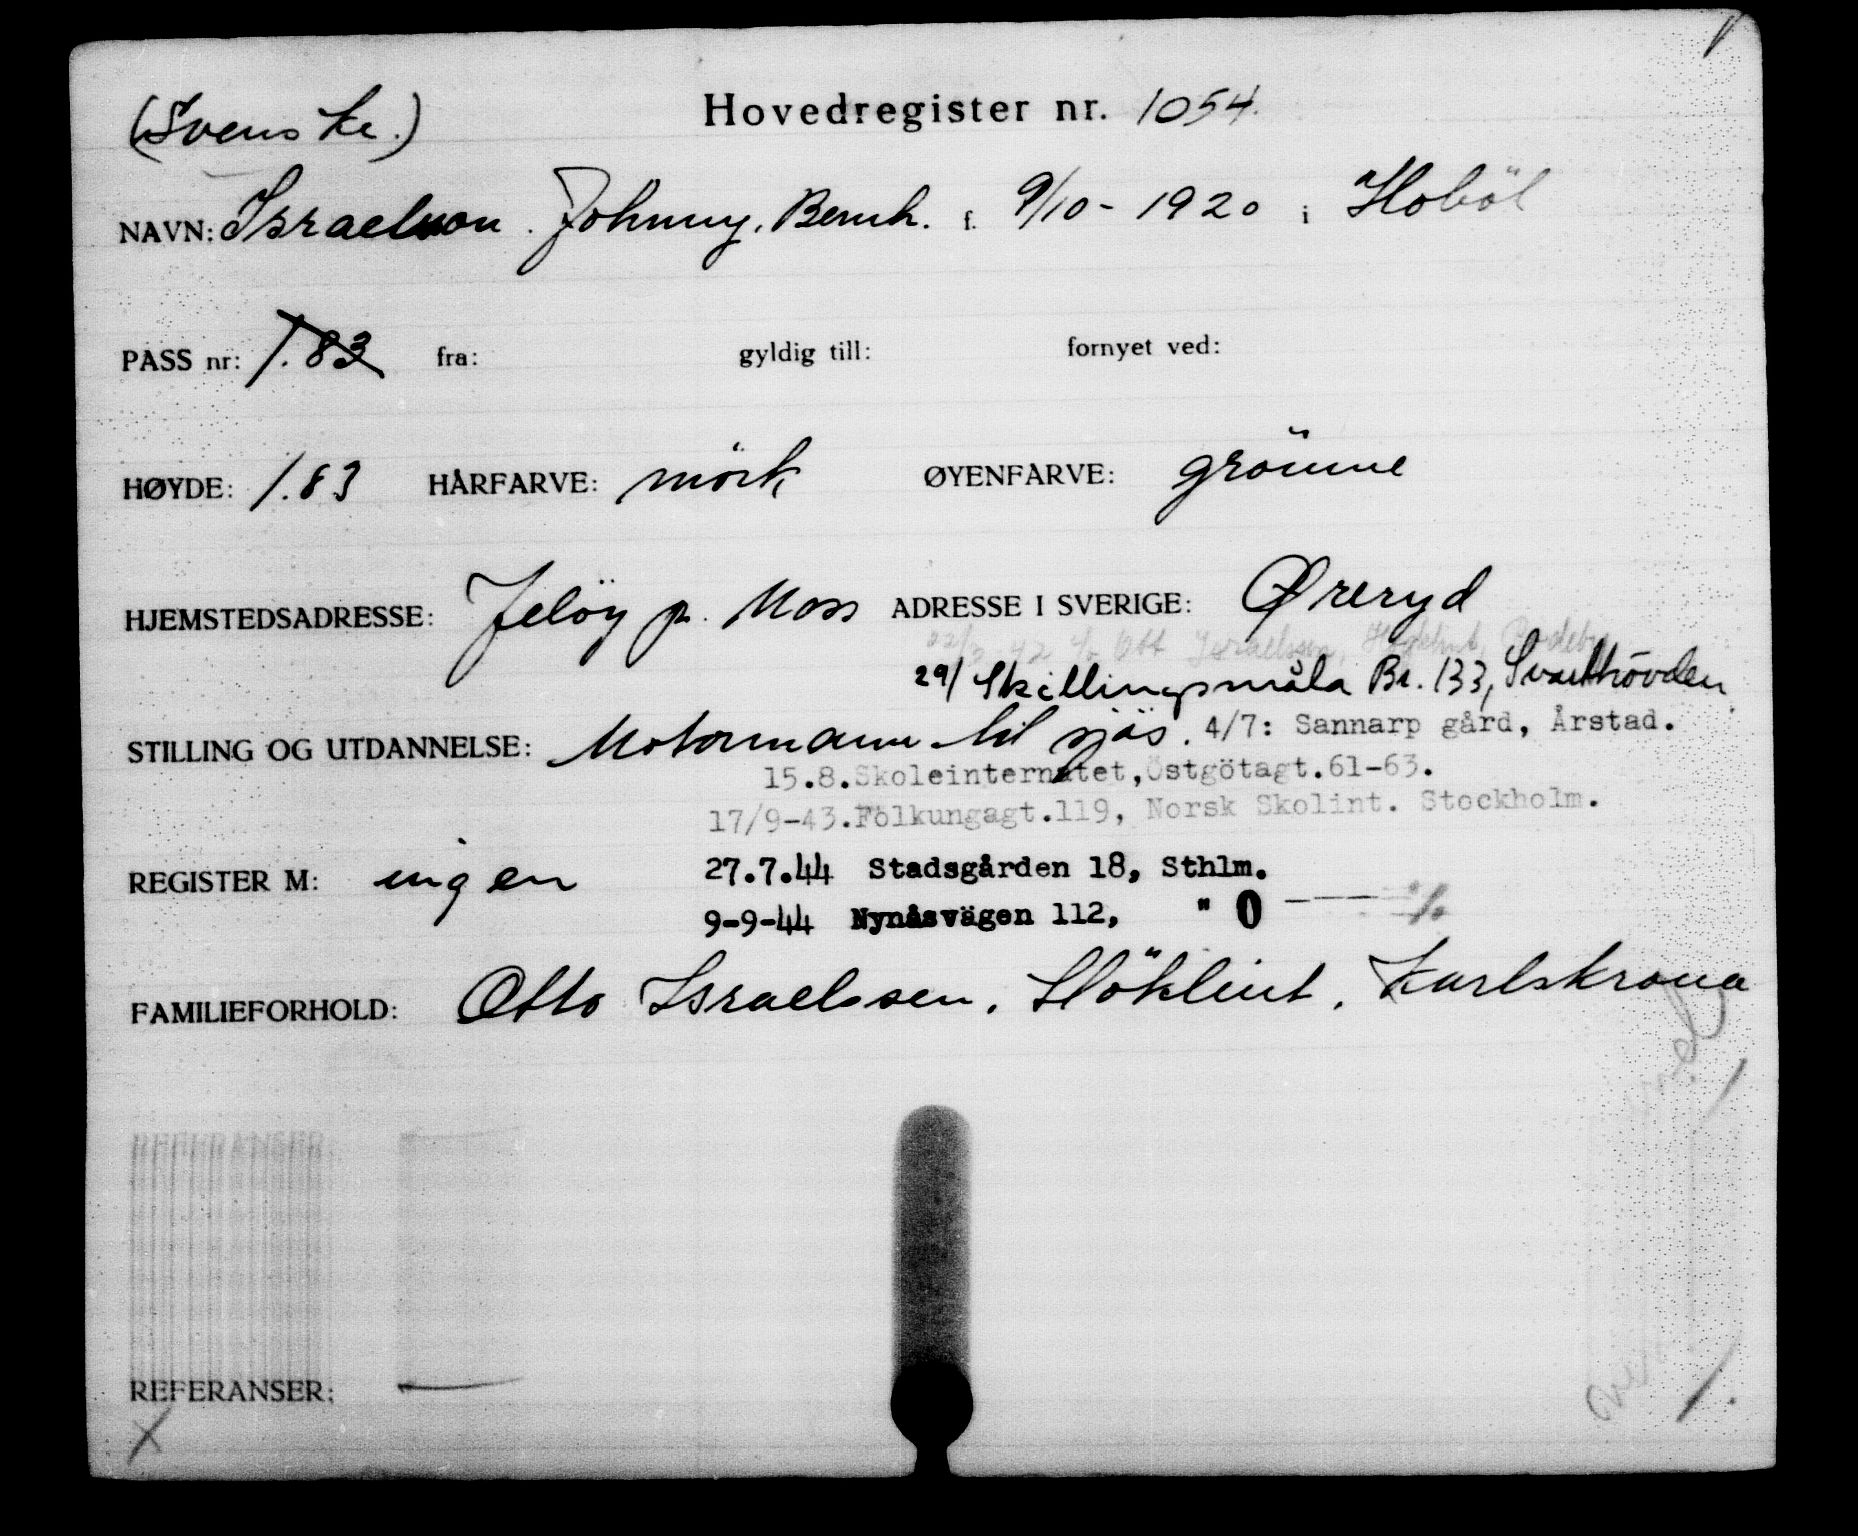 (Svenske.) Hovedregister nr. 1054.
NAVN: Israelsson. Johnny. Bernh. f. 9/10-1920 i Hobøl
PASS nr: 1.83 fra: gyldig till: fornyet ved:
HØYDE: 1.83 HÅRFARVE: mörk ØYENFARVE: grönne
HJEMSTEDSADRESSE: Jelöy p. Moss ADRESSE I SVERIGE: Øreryd
42 c/o Ott Israelssen,
29/ Skillingsmåla Br. 133,
STILLING OG UTDANNELSE: Motormann til sjös. 4/7: Sannarp gård, Årstad.
15.8.Skoleinternatet,Östgötagt.61-63.
17/9-43.Fölkungagt.119, Norsk Skolint. Stockholm.
REGISTER M: ingen 27.7.44 Stadsgården 18, Sthlm.
9-9-44 Nynåsvägen 112, " O
FAMILIEFORHOLD: Otto Israelssen, Höklint, Karlskrona
REFERANSER: —
X